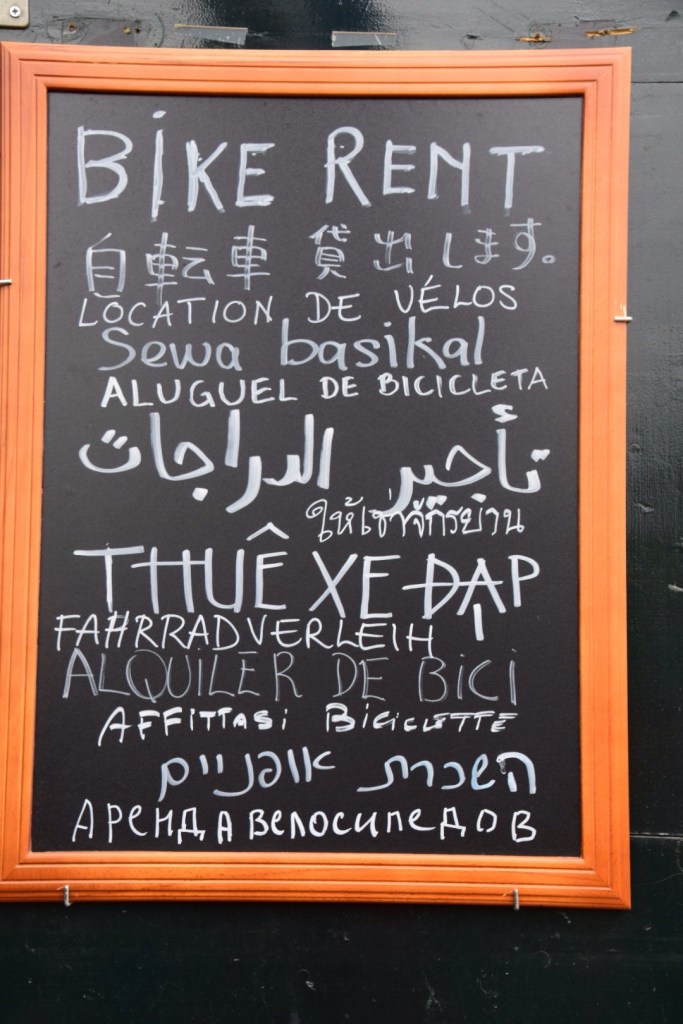 BiKE RENT
自転車 貸出します。
LOCATION DE VÉLOS
Sewa basikal
ALUGUEL DE BICICLETA
تأجير الدراجات
ให้เช่าจักรยาน
THUÊ XE ĐẠP
FAHRRADVERLEIH
ALQUiLER DE BiCi
AFFITTASi BiCiCLETTE
השכרת אופניים
АРЕНДА велосипедов